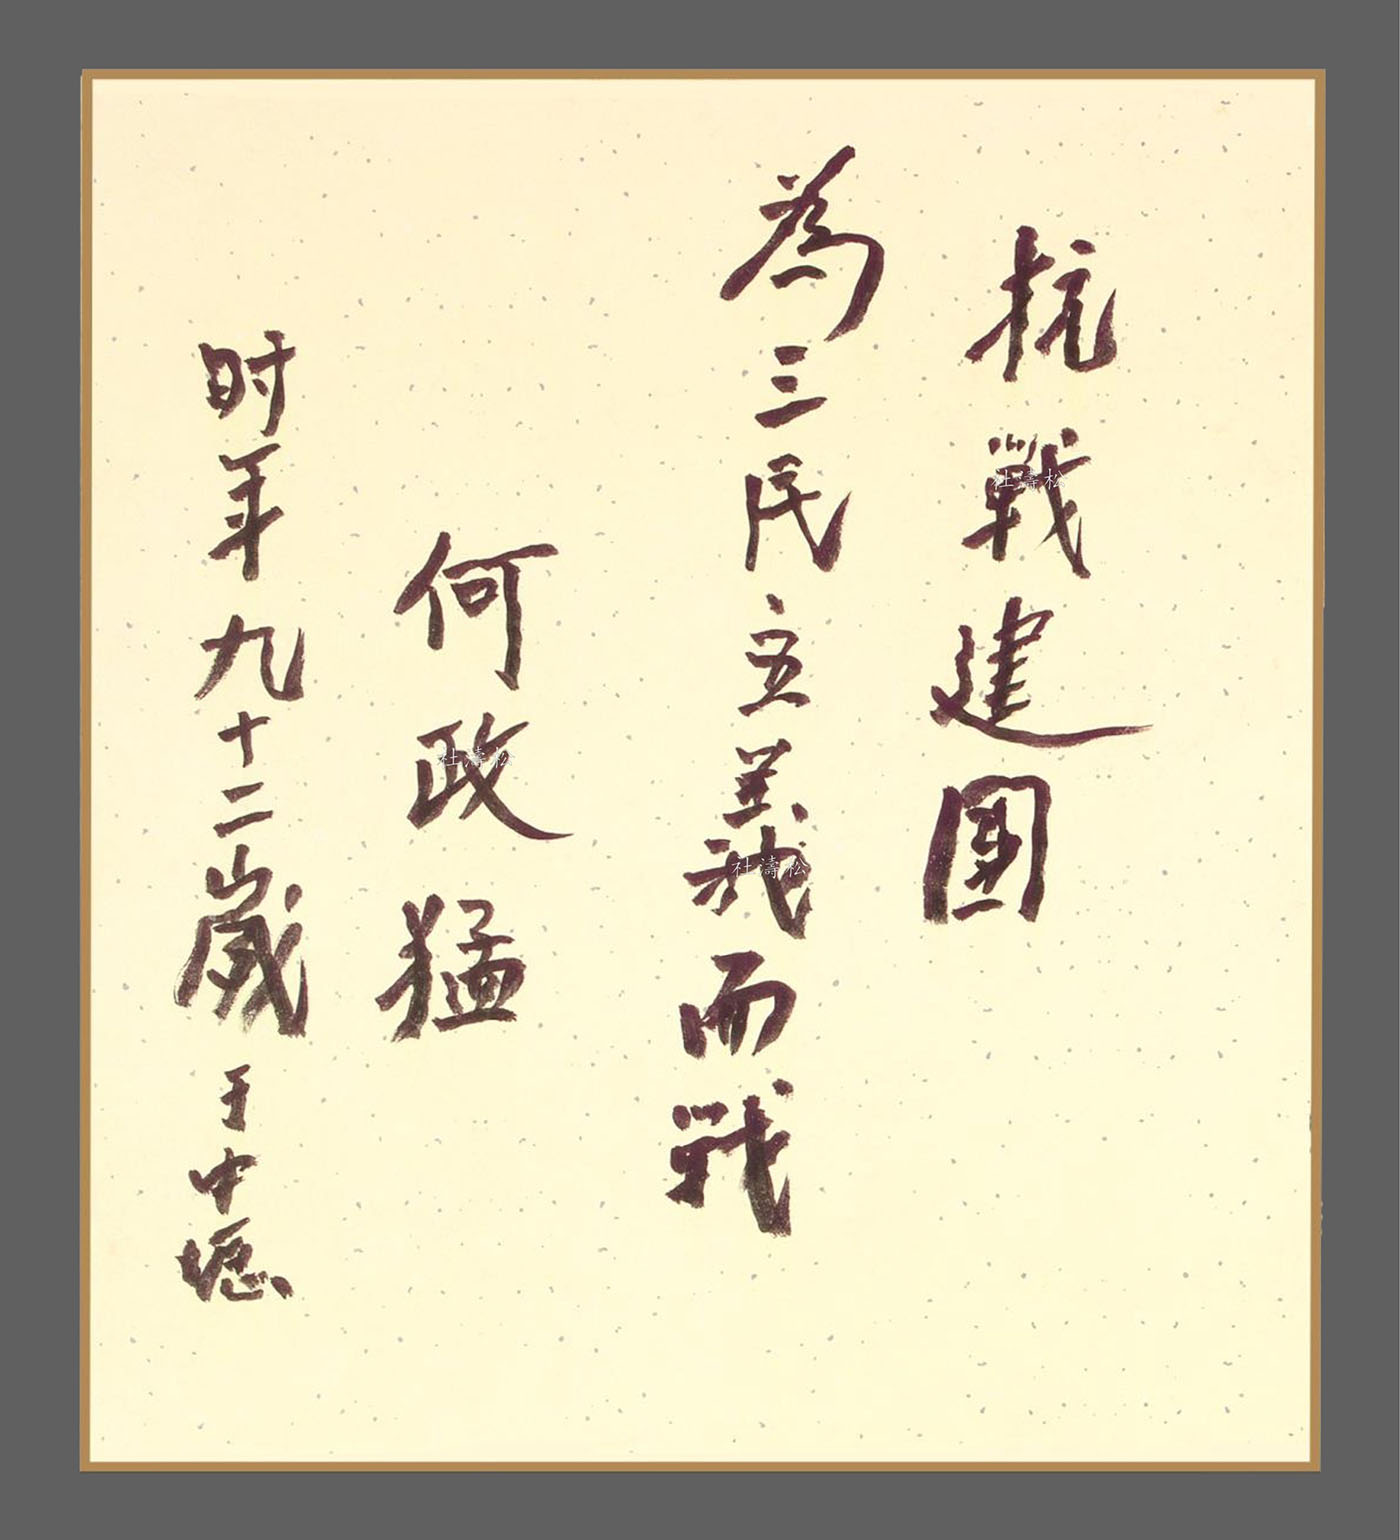 抗戰建國
為三民主義而戰
何政猛
时年九十二歲于中壢
杜濤松
杜濤松
杜濤松